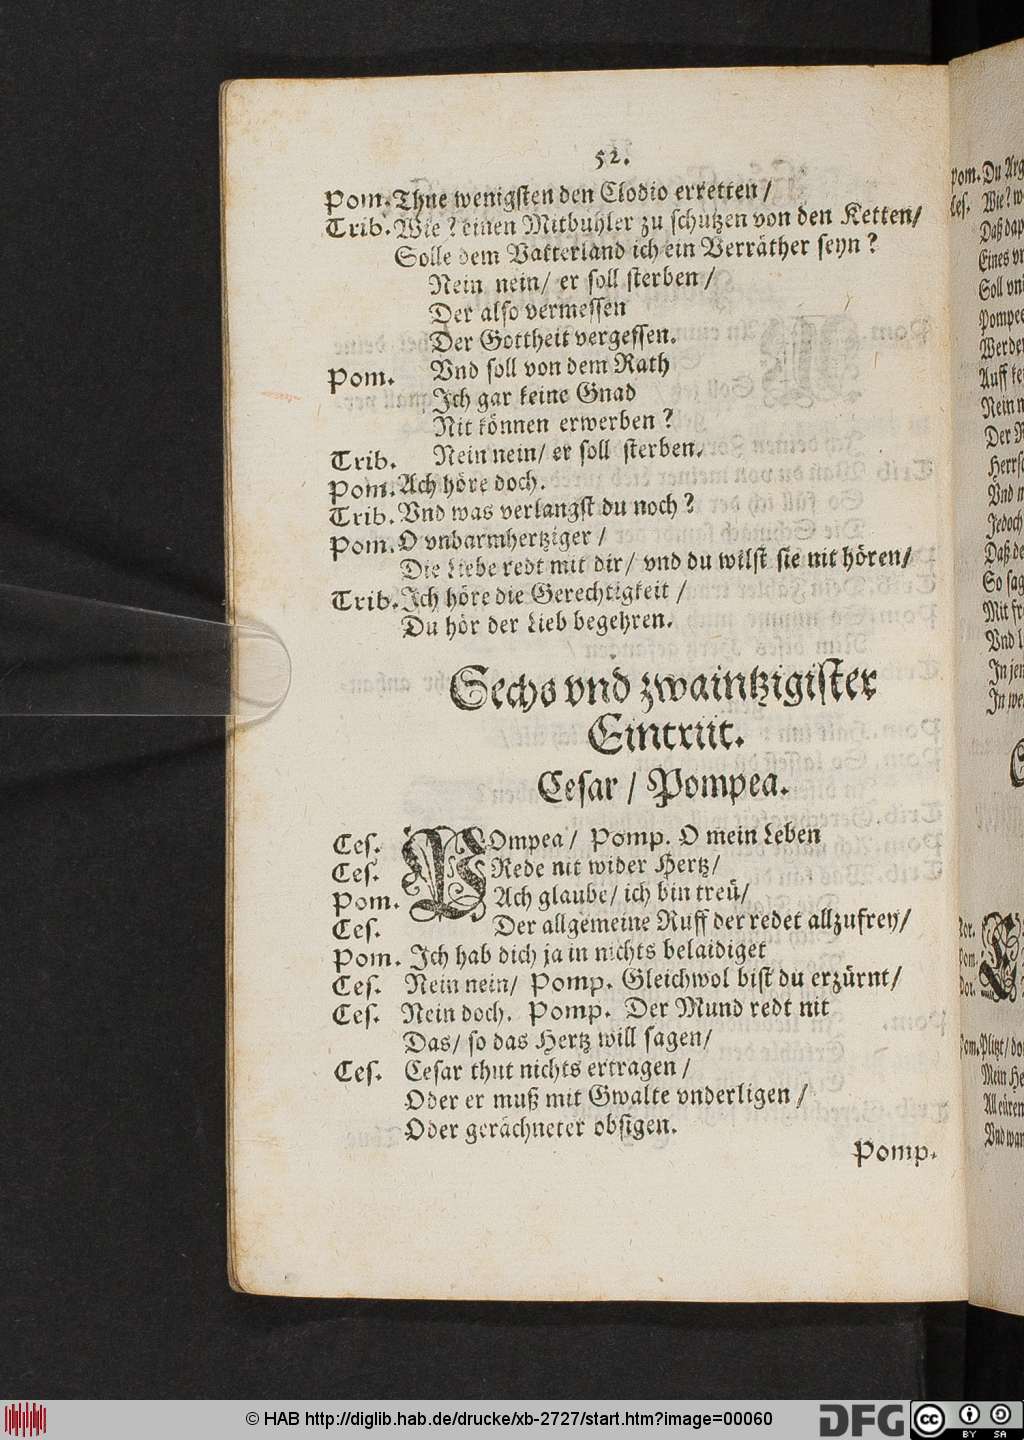 52.
Pom. Thue wenigsten den Clodio erretten /
Trib. Wie? einen Mitbuhler zu schutzen von den Ketten /
Solle dem Vatterland ich ein Verräther seyn?
Nein nein / er soll sterben /
Der also vermessen
Der Gottheit vergessen.
Pom. Vnd soll von dem Rath
Ich gar keine Gnad
Nit können erwerben?
Trib. Nein nein / er soll sterben.
Pom. Ach höre doch.
Trib. Vnd was verlangst du noch?
Pom. O vnbarmhertziger /
Die Liebe redt mit dir / vnd du wilst sie nit hören /
Trib. Ich höre die Gerechtigkeit /
Du hör der Lieb begehren.
Sechs vnd zwaintzigister
Eintritt.
Cesar / Pompea.
Ces. POmpea / Pomp. O mein Leben
Ces. Rede nit wider Hertz /
Pom. Ach glaube / ich bin treü /
Ces. Der allgemeine Ruff der redet allzufrey /
Pom. Ich hab dich ja in nichts belaidiget
Ces. Nein nein / Pomp. Gleichwol bist du erzürnt /
Ces. Nein doch. Pomp. Der Mund redt nit
Das / so das Hertz will sagen /
Ces. Cesar thut nichts ertragen /
Oder er muß mit Gwalte vnderligen /
Oder gerächneter obsigen.
Pomp.
Pom. Du
Ces. Wie?
Eines
Soll
Pompee
Auff
Nein
Der
Vnd
Jedoch
So sag
Mit
Vnd
© HAB http://diglib.hab.de/drucke/xb-2727/start.htm?image=00060
DFG
cc BY SA